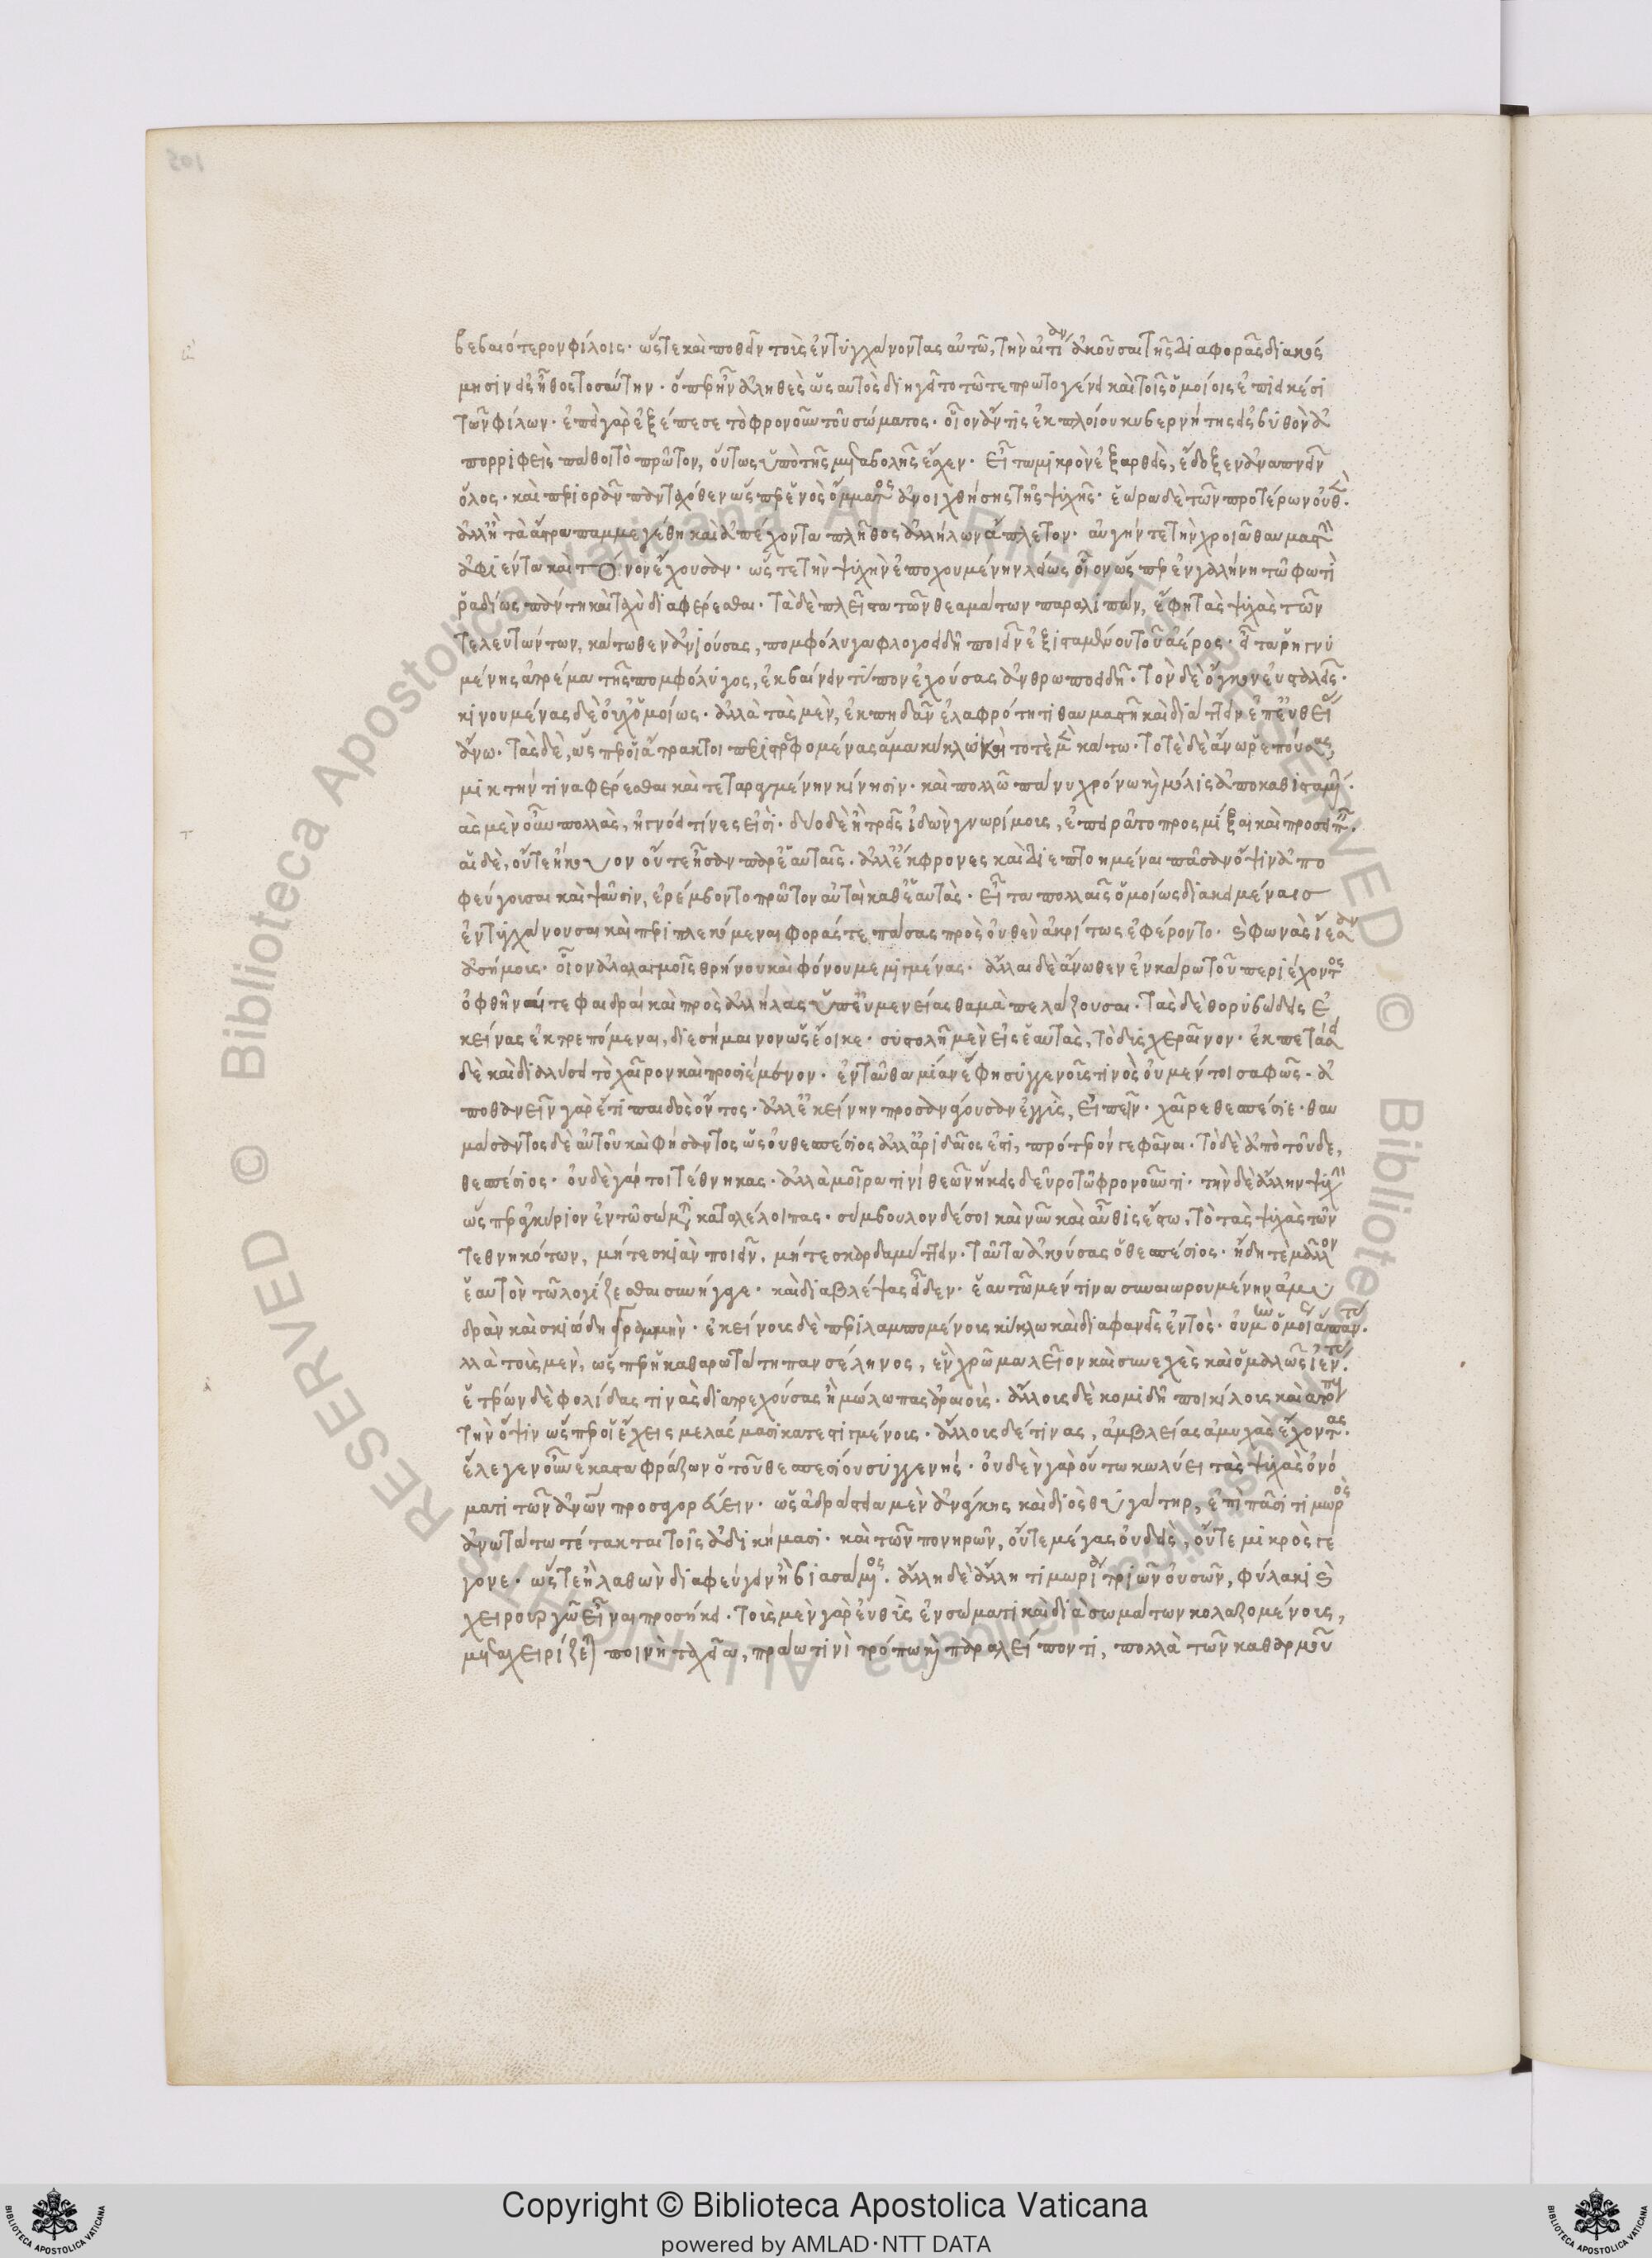 βεβαιότερον φίλοις· ὥστε καὶ ποθεῖν τοὺς ἐντυγχάνοντας αὐτῶ, τὴν αἰτίαν ἀκοῦσαι τῆς διαφορᾶς· διακόσ
μησιν εἰς ἦθος τοσαύτην· ὅπερ ἦν ἀληθὲς ὡς αὐτὸς διηγεῖτο τῶ τε πρωτογένει καὶ τοῖς ὁμοίοις ἐπιεικέσι
τῶν φίλων· ἐπεὶ γὰρ ἐξέπεσε τὸ φρονοῦν τοῦ σώματος· οἷον ἄν τις ἐκ πλοίου κυβερνήτης εἰς βυθὸν ἀ
πορριφεὶς πάθοι τὸ πρῶτον, οὕτως ὑπὸ τῆς μεταβολῆς ἔσχεν· εἶτα μικρὸν ἐξαρθεὶς, ἔδοξεν ἀναπνεῖν
ὅλος· καὶ περιορᾶν πανταχόθεν ὥσπερ ἑνὸς ὄμματος ἀνοιχθείσης τῆς ψυχῆς· ἑώρα δὲ τῶν προτέρων οὐθὲν·
ἀλλ' ἢ τὰ ἄστρα παμμεγέθη καὶ ἀπέχοντα πλῆθος ἀλλήλων ἄπλετον· αὐγήν τε τὴν χροιὰν θαυμαστὴν
ἀφιέντα καὶ τόνον ἔχουσαν· ὥστε τὴν ψυχὴν ἐποχουμένην λείως οἷον ὥσπερ ἐν γαλήνη τῶ φωτὶ
ῥαδίως πάντη καὶ ταχὺ διαφέρεσθαι· τὰ δὲ πλεῖστα τῶν θεαμάτων παραλιπὼν, ἔφη τὰς ψυχὰς τῶν
τελευτώντων, κάτωθεν ἀνιούσας, πομφόλυγα φλογοειδῆ ποιεῖν ἐξισταμένου τοῦ ἀέρος· εἶτα ῥηγνυ
μένης ἀτρέμα τῆς πομφόλυγος, ἐκβαίνειν τύπον ἐχούσας ἀνθρωποειδῆ· τὸν δὲ ὄγκον εὐσταλεῖς·
κινουμένας δὲ οὐχ ὁμοίως· ἀλλὰ τὰς μὲν, ἐκπηδᾶν ἐλαφρότητι θαυμαστῆ καὶ διάττειν ἐπ' εὐθεῖαν
ἄνω· τὰς δὲ, ὥσπερ οἱ ἄτρακτοι περιστρεφομένας ἅμα κύκλω καὶ τοτὲ μὲν κάτω· τοτὲ δὲ ἄνω ῥεπούσας,
μικτήν τινα φέρεσθαι καὶ τεταραγμένην κίνησιν· καὶ πολλῶ πάνυ χρόνω καὶ μόλις ἀποκαθισταμένην·
ἃς μὲν οὖν πολλὰς, ἠγνόει τίνες εἰσί· δύο δὲ ἢ τρεῖς ἰδὼν γνωρίμους, ἐπειρᾶτο προσμίξαι καὶ προσειπεῖν·
αἱ δὲ, οὔτε ἤκουον οὔτε ἦσαν παρ' ἑαυταῖς· ἀλλ' ἔκφρονες καὶ διεπτοημέναι πᾶσαν ὄψιν ἀπο
φεύγουσαι καὶ ψαῦσιν, ἐρέμβοντο πρῶτον αὐταὶ καθ' ἑαυτὰς· εἶτα πολλαῖς ὁμοίως διακειμέναις
ἐντυγχάνουσαι καὶ περιπλεκόμεναι φοράς τε πάσας πρὸς οὐθὲν ἀκρίτως ἐφέροντο· καὶ φωνὰς ἵεσαν
ἀσήμους· οἷον ἀλαλαγμοῖς θρήνου καὶ φόνου μεμιγμένας· ἄλλαι δὲ ἄνωθεν ἐν καθαρῶ τοῦ περιέχοντος
ὀφθῆναί τε φαιδραὶ καὶ πρὸς ἀλλήλας ὑπ' εὐμενείας θαμὰ πελάζουσαι· τὰς δὲ θορυβώδεις ἐ
κείνας ἐκτρεπόμεναι, διεσήμαινον ὡς ἔοικε· συστολῆ μὲν εἰς ἑαυτὰς, τὸ δυσχεραῖνον· ἐκπετάσει
δὲ καὶ διαλύσει τὸ χαῖρον καὶ προσιέμενον· ἐνταῦθα μίαν ἔφη συγγενοῦς τινὸς οὐ μέντοι σαφῶς· ἀ
ποθανεῖν γὰρ ἔτι παιδὸς ὄντος· ἀλλ' ἐκείνην προσαγαγοῦσαν ἐγγὺς, εἰπεῖν· χαῖρε θεσπέσιε· θαυ
μάσαντος δὲ αὐτοῦ καὶ φήσαντος ὡς οὐ θεσπέσιος ἀλλ' ἀριδαῖος ἐστὶ, πρότερόν γε φάναι· τὸ δὲ ἀπὸ τοῦδε,
θεσπέσιος· οὐδὲ γάρ τοι τέθνηκας· ἀλλὰ μοίρα τινὶ θεῶν ἥκεις δεῦρο τῶ φρονοῦντι· τὴν δὲ ἄλλην ψυχὴν
ὥσπερ ἀγκύριον ἐν τῶ σώματι καταλέλοιπας· σύμβολον δέ σοι καὶ νῦν καὶ αὖθις ἔστω, τὸ τὰς ψυχὰς τῶν
τεθνηκότων, μήτε σκιὰν ποιεῖν, μήτε σκαρδαμύττειν· ταῦτα ἀκούσας ὁ θεσπέσιος· ἤδη τὲ μᾶλλον
ἑαυτὸν τῶ λογίζεσθαι συνήγαγε· καὶ διαβλέψας εἶδεν· ἑαυτῶ μέν τινα συναιωρουμένην ἀμυ
δρὰν καὶ σκιώδη γραμμὴν· ἐκείνους δὲ περιλαμπομένους κύκλω καὶ διαφανεῖς ἐντὸς· οὐ μὴν ὁμοίως ἅπαντας·
λλὰ τοὺς μὲν, ὥσπερ ἡ καθαρωτάτη πανσέληνος, ἓν χρῶμα λεῖον καὶ συνεχὲς καὶ ὁμαλῶς ἱέντας·
ἑτέρων δὲ φολίδας τινὰς διατρεχούσας ἢ μώλωπας ἀραιοὺς· ἄλλους δὲ κομιδῆ ποικίλους καὶ ἀτόπους
τὴν ὄψιν ὥσπερ οἱ ἔχεις μελάσμασι κατεστιγμένους· ἄλλους δέ τινας, ἀμβλείας ἀμυχὰς ἔχοντας·
ἔλεγεν οὖν ἕκαστα φράζων ὁ τοῦ θεσπεσίου συγγενής· οὐδὲν γὰρ οὕτω κωλύει τὰς ψυχὰς ὀνό
ματι τῶν ἀνθρώπων προσαγορεύειν· ὡς ἀδράστεια μὲν ἀνάγκης καὶ διὸς θυγάτηρ, ἐπὶ πᾶσι τιμωρὸς
ἀνωτάτω τέτακται τοῖς ἀδικήμασι· καὶ τῶν πονηρῶν, οὔτε μέγας οὐδεὶς, οὔτε μικρὸς γέ
γονε· ὥστε ἢ λαθὼν διαφεύγειν ἢ βιασάμενος· ἄλλη δὲ ἄλλη τιμωρία τριῶν οὐσῶν, φύλακι καὶ
χειρουργῶ εἶναι προσήκει· τοὺς μὲν γὰρ εὐθὺς ἐν σώματι καὶ διὰ σωμάτων κολαζομένους,
μεταχειρίζεται ποινὴ ταχεῖα, πράω τινὶ τρόπω καὶ παραλείποντι, πολλὰ τῶν καθαρμοῦ